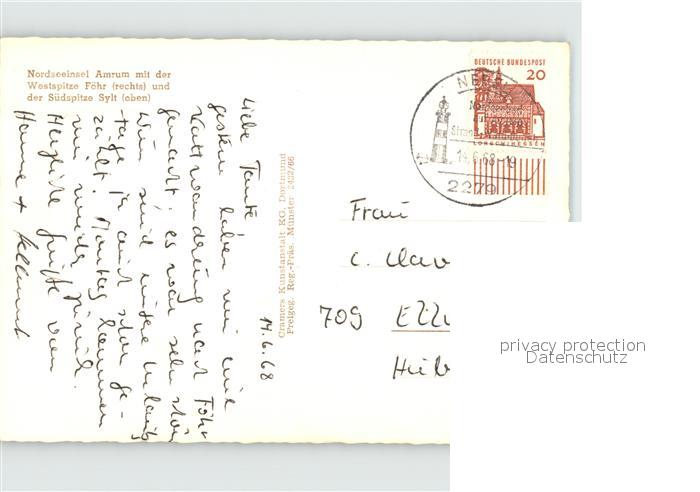 Nordseeinsel Amrum mit der
Westspitze Föhr (rechts) und
der Südspitze Sylt (oben)
Liebe Tante
gestern haben wir eine
Wattwanderung nach Föhr
gemacht. es war sehr schön
Nun sind unsere Urlaubs
tage ja auch schon ge-
zählt. Montag kommen
wir wieder zurück.
Herzliche Grüße von
Hanne + Hellmut
14.6.68
Cramers Kunstanstalt KG, Dortmund
Freigeg. Reg.-Präs. Münster 2422/66
DEUTSCHE BUNDESPOST
20
LORSCH/HESSEN
NEB
14.6.68-19
2279
Frau
C. Clav
709 Ellw
Hieb
privacy protection
Datenschutz